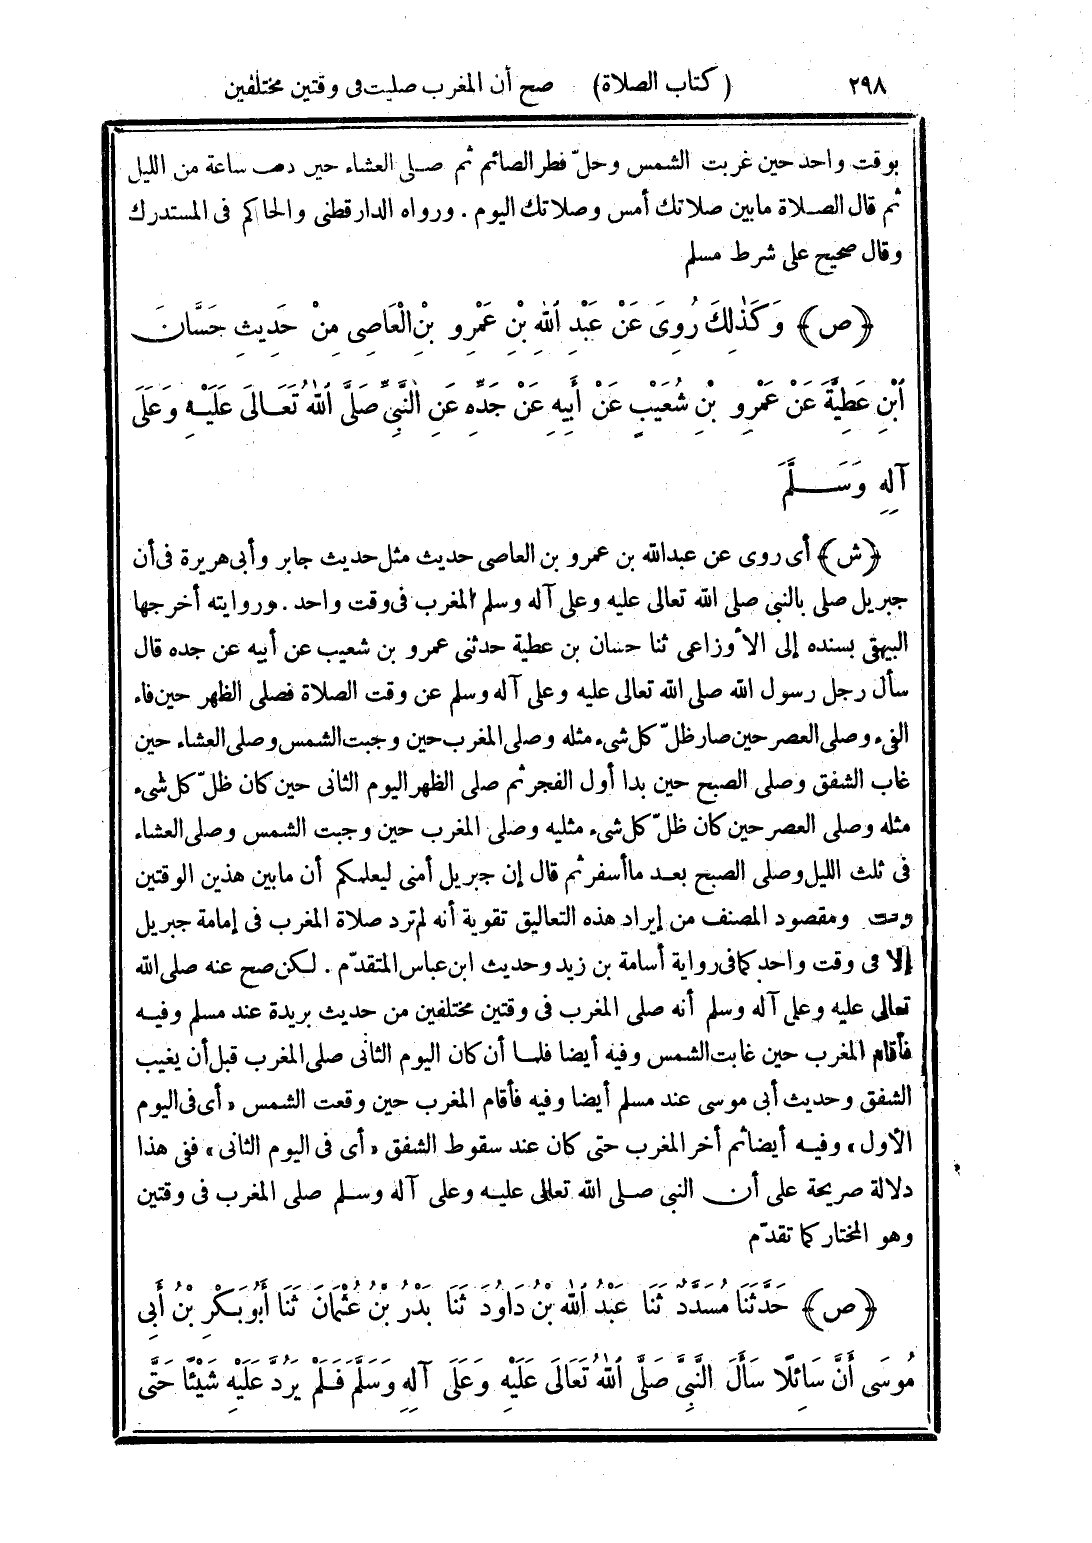 ٢٩٨ (كتاب الصلاة) صح أن المغرب صليت فى وقتين مختلفين
بوقت واحد حين غربت الشمس وحلّ فطر الصائم ثم صلى العشاء حين ذهب ساعة من الليل
ثم قال الصلاة مابين صلاتك أمس وصلاتك اليوم . ورواه الدارقطنى والحاكم فى المستدرك
وقال صحيح على شرط مسلم
﴿ص﴾ وَكَذٰلِكَ رُوِىَ عَنْ عَبْدِ اللهِ بْنِ عَمْرِو بْنِ الْعَاصِى مِنْ حَدِيثِ حَسَّانَ
ابْنِ عَطِيَّةَ عَنْ عَمْرِو بْنِ شُعَيْبٍ عَنْ أَبِيهِ عَنْ جَدِّهِ عَنِ النَّبِىِّ صَلَّى اللهُ تَعَالَى عَلَيْهِ وَعَلَى
آلِهِ وَسَلَّمَ
﴿ش﴾ أى روى عن عبدالله بن عمرو بن العاصى حديث مثل حديث جابر وأبى هريرة فى أن
جبريل صلى بالنبى صلى الله تعالى عليه وعلى آله وسلم المغرب فى وقت واحد . وروايته أخرجها
البيهقى بسنده إلى الأوزاعى ثنا حسان بن عطية حدثنى عمرو بن شعيب عن أبيه عن جده قال
سأل رجل رسول الله صلى الله تعالى عليه وعلى آله وسلم عن وقت الصلاة فصلى الظهر حين فاء
الفىء وصلى العصر حين صار ظلّ كل شىء مثله وصلى المغرب حين وجبت الشمس وصلى العشاء حين
غاب الشفق وصلى الصبح حين بدا أول الفجر ثم صلى الظهر اليوم الثانى حين كان ظلّ كل شىء
مثله وصلى العصر حين كان ظلّ كل شىء مثليه وصلى المغرب حين وجبت الشمس وصلى العشاء
فى ثلث الليل وصلى الصبح بعد ماأسفر ثم قال إن جبريل أمنى ليعلمكم أن مابين هذين الوقتين
وقت ومقصود المصنف من إيراد هذه التعاليق تقوية أنه لم ترد صلاة المغرب فى إمامة جبريل
إلا فى وقت واحد كما فى رواية أسامة بن زيد وحديث ابن عباس المتقدّم . لكن صح عنه صلى الله
تعالى عليه وعلى آله وسلم أنه صلى المغرب فى وقتين مختلفين من حديث بريدة عند مسلم وفيه
فأقام المغرب حين غابت الشمس وفيه أيضا فلما أن كان اليوم الثانى صلى المغرب قبل أن يغيب
الشفق وحديث أبى موسى عند مسلم أيضا وفيه فأقام المغرب حين وقعت الشمس «أى فى اليوم
الأول» وفيه أيضا ثم أخر المغرب حتى كان عند سقوط الشفق «أى فى اليوم الثانى» ففى هذا
دلالة صريحة على أن النبى صلى الله تعالى عليه وعلى آله وسلم صلى المغرب فى وقتين
وهو المختار كما تقدّم
﴿ص﴾ حَدَّثَنَا مُسَدَّدٌ ثَنَا عَبْدُ اللهِ بْنُ دَاوُدَ ثَنَا بَدْرُ بْنُ عُثْمَانَ ثَنَا أَبُوبَكْرِ بْنُ أَبِى
مُوسَى أَنَّ سَائِلًا سَأَلَ النَّبِىَّ صَلَّى اللهُ تَعَالَى عَلَيْهِ وَعَلَى آلِهِ وَسَلَّمَ فَلَمْ يَرُدَّ عَلَيْهِ شَيْئًا حَتَّى